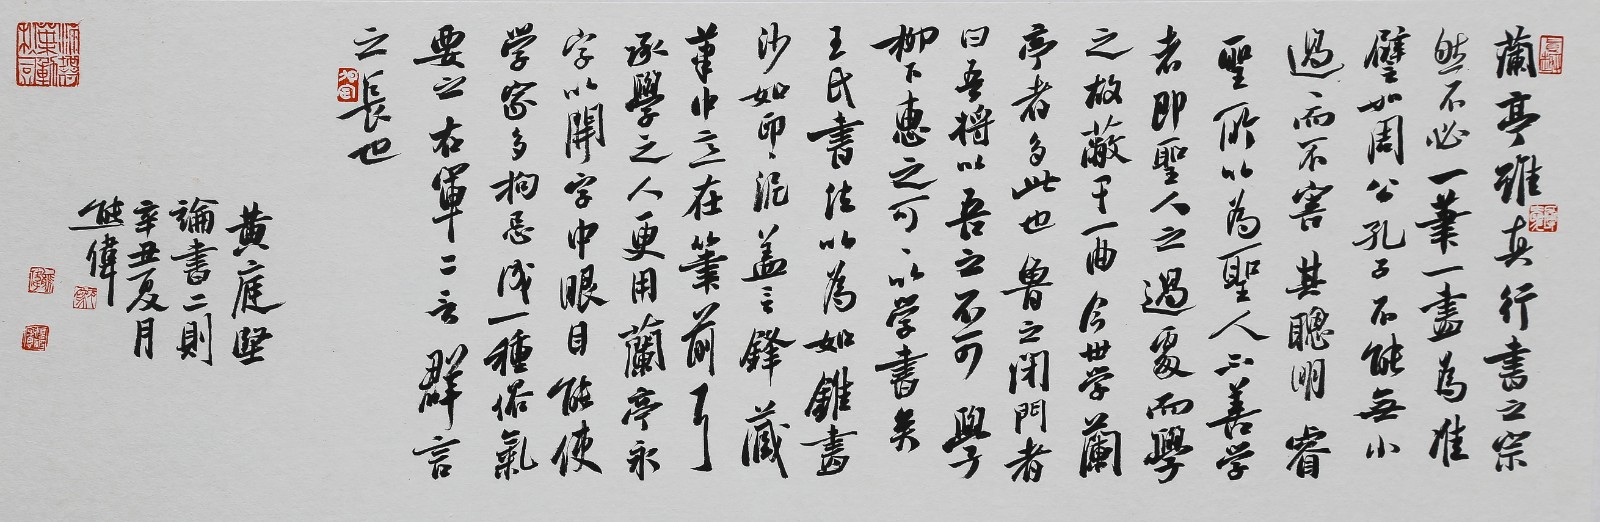 蘭亭雖真行書之宗
然不必一筆一畫為准
譬如周公孔子不能無小
過而不害其聰明睿
聖所以為聖人不善学
者即聖人之過處而學
之故蔽于一曲今世学蘭
亭者多此也魯之闭門者
曰吾將以吾之不可學
柳下惠之可以学書矣
王氏書法以為如錐畫
沙如印印泥盖言鋒藏
筆中意在筆前耳
承學之人更用蘭亭永
字以開字中眼目能使
学家多拘忌成一種俗氣
要之右軍二言群言
之長也
黄庭堅
論書二則
辛丑夏月
熊偉